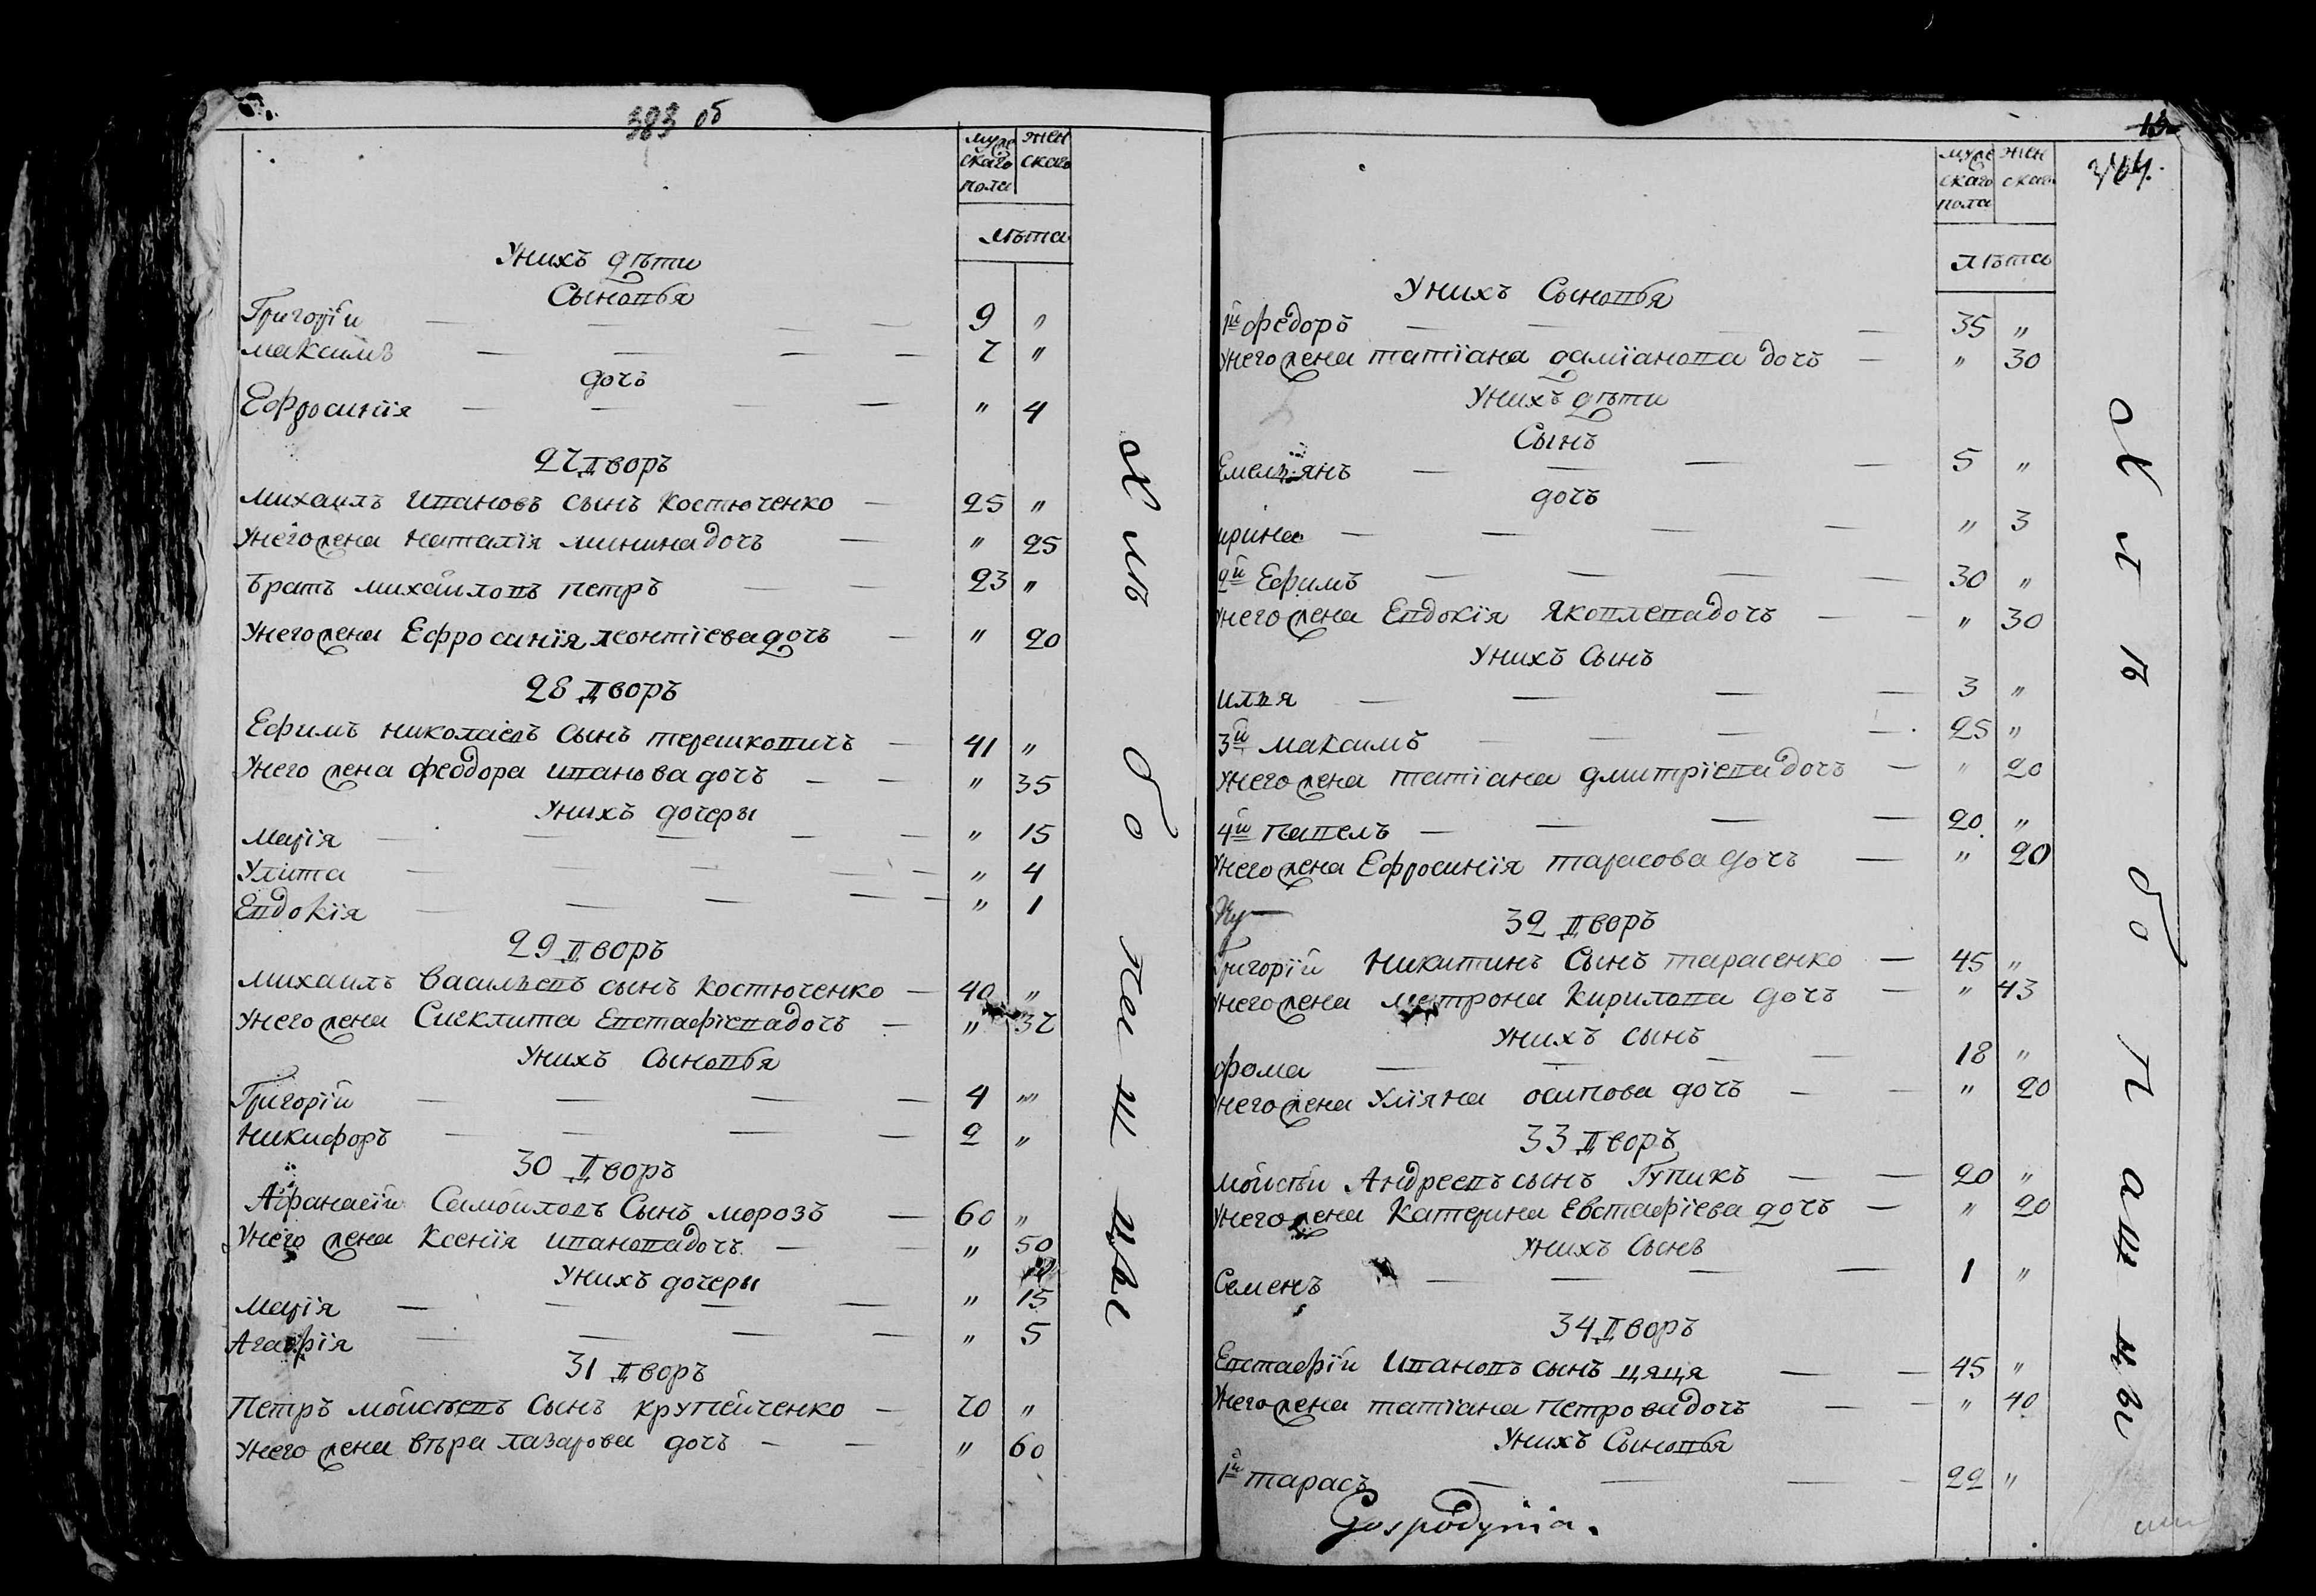 383 об
мужескаго пола
женскаго
лѣта
Унихъ дѣти
Сыновья
Григорій — 9 "
максимъ — 7 "
дочь
Ефросинія — " 4
27 дворъ
михаилъ ивановъ сынъ Костюченко — 25 "
унего жена наталія минина дочь — " 25
братъ михайловъ петръ — 23 "
унего жена Ефросинія леонтіева дочь — " 20
28 дворъ
Ефимъ николаевъ сынъ терешковичъ — 41 "
Унего жена феодора иванова дочь — " 35
Унихъ дочеры
марія — " 15
Улита — " 4
Евдокія — " 1
29 дворъ
михаилъ Васильевъ сынъ Костюченко — 40 "
унего жена Сигклита Евстафіева дочь — " 37
Унихъ Сыновья
Григорій — 4 "
Никифоръ — 2 "
30 дворъ
Афанасій Самойловъ Сынъ морозъ — 60 "
Унего жена Ксенія иванова дочь — " 50
Унихъ дочеры
марія — " 15
Агафія — " 5
31 дворъ
Петръ мойсѣевъ Сынъ крупейченко — 70 "
унего жена вѣра лазарова дочь — " 60
Хлѣбопашцы
384.
мужескаго пола
женскаго
лѣта
Унихъ Сыновья
1й федоръ — 35 "
унего жена татіана даміанова дочь — " 30
Унихъ дѣти
Сынъ
Емельянъ — 5 "
дочь
ирина — " 3
2й Ефимъ — 30 "
унего жена Евдокія Яковлева дочь — " 30
Унихъ Сынъ
илья — 3 "
3й максимъ — 25 "
унего жена татіана дмитріева дочь — " 20
4й павелъ — 20 "
унего жена Ефросинія тарасова дочь — " 20
32 дворъ
Григорій Никитинъ Сынъ тарасенко — 45 "
унего жена матрона Кирилова дочь — " 43
Унихъ сынъ
фома — 18 "
унего жена Уліяна осипова дочь — " 20
33 дворъ
мойсѣй Андреевъ сынъ Гупикъ — 20 "
унего жена Катерина Евстафіева дочь — " 20
Унихъ Сынъ
Семенъ — 1 "
34 дворъ
Евстафій Ивановъ сынъ цяця — 45 "
унего жена татіана петрова дочь — " 40
Унихъ Сыновья
1й тарасъ — 22 "
Gospodynia.
Хлѣбопашцы